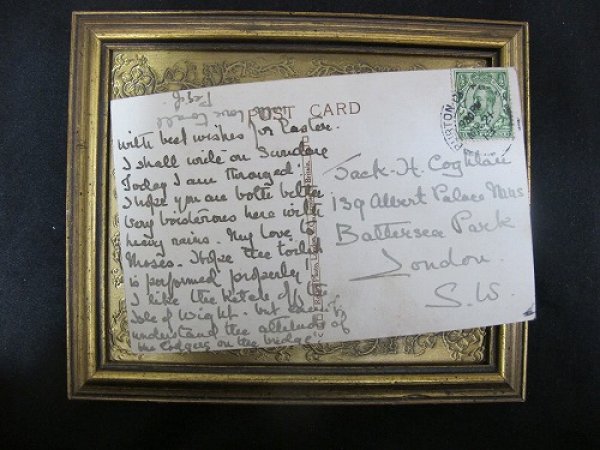 POST CARD
with best wishes for Easter.
I shall write on Sunday
Today I am thronged.
I hope you are both better
Very boisterous here with
heavy rains. My love to
Moses. I hope the toilet
is performed properly
I like the sketch of the
Isle of Wight. but can't
understand the attitude of
the lodgers on the bridge
Jack. H. Coghlan
139 Albert Palace Mans
Battersea Park
London.
S.W.